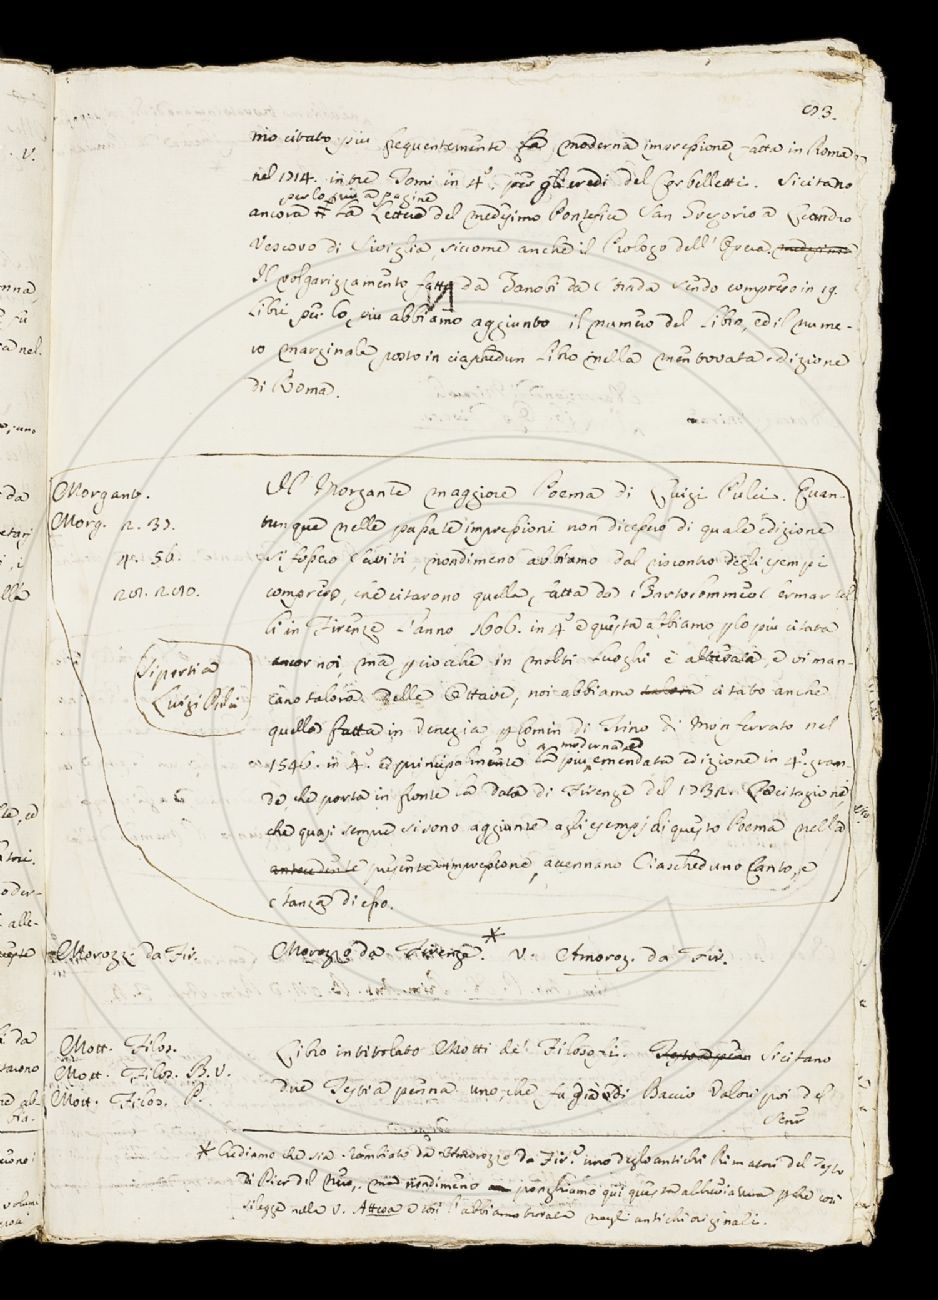 93.
mio citato piu frequentemente la moderna impressione fatta in Roma
nel 1714. in tre Tomi in 4.° per gli eredi del Corbelletti. Si citano
per lo piu a pagine
ancora la Lettera del medesimo Pontefice San Gregorio a Leandro
Vescovo di Siviglia, siccome anche il Prologo dell'Opera
Il volgarizzamento fatto da Zanobi da Strada sendo compreso in 19.
Libri per lo piu abbiamo aggiunto il numero del Libro, ed il nume-
ro marginale posto in ciaschedun Libro nella mentovata edizione
di Roma.
Morgante.
Morg. 2. 37.
4. 56.
Si porti a
Luigi Pulci
Il Morgante maggiore Poema di Luigi Pulci. Quan-
tunque nelle passate impressioni non dicessero di quale edizione
si fossero serviti, nondimeno abbiamo dal riscontro degli esempi
compreso, che citarono quella, fatta da Bartolommeo Sermartel
li in Firenze l'anno 1606. in 4.° e questa abbiamo p lo piu citata
ancor noi, ma p cio che in molti luoghi è alterata, e vi man-
cano talora delle Ottave, noi abbiamo talora citato anche
quella fatta in Venezia p Comin di Trino di Monferrato nel
1546. in 4.° e principalmente la piu moderna ed emendata edizione in 4.° gran-
de che porta in fronte la data di Firenze del 1732. Le citazioni
che quasi sempre si sono aggiunte agli esempj di questo Poema nella
antecedente presente impressione, accennano Ciascheduno Canto, e
Stanza di esso.
Morozz. da Fir.
Morozzo da Firenze.* V. Amoroz. da Fir.
Mott. Filos.
Mott. Filos. B. V.
Mott. Filos. P.
Libro intitolato Motti de' Filosofi. Si citano
due Testi a penna uno, che fu già di Baccio Valori poi del
Sen.r
* Crediamo che sia da Fir.e uno degli antichi Rimatori del Testo
di Pier del Nero, ma nondimeno ponghiamo qui questa abbreviatura p che così
si legge nella V. Attesa e così l'abbiamo trovata negli antichi originali.